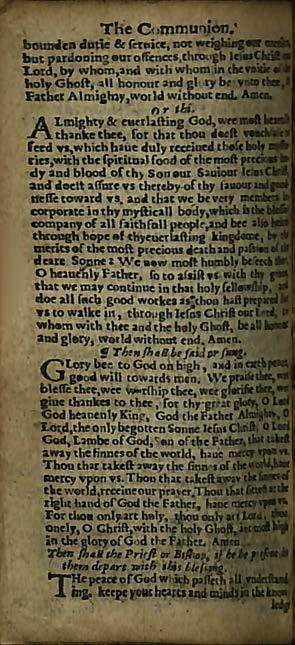 The Communion.
bounden dutie & seruice, not weighing our merits,
but pardoning our offences, through Iesus Christ our
Lord, by whom, and with whom in the vnitie of the
holy Ghost, all honour and glory be vnto thee, O
Father Almighty, world without end. Amen.
or this.
ALmighty & euerlasting God, wee most heartily
thanke thee, for that thou doest vouchsafe to
feed vs, which haue duly receiued those holy myste-
ries, with the spiritual food of the most precious bo-
dy and blood of thy Son our Sauiour Iesus Christ,
and doest assure vs thereby of thy fauour and good-
nesse toward vs, and that we be very members in-
corporate in thy mysticall body, which is the blessed
company of all faithfull people, and bee also heires
through hope of thy euerlasting kingdome, by the
merits of the most precious death and passion of thy
deare Sonne: We now most humbly beseech thee,
O heauenly Father, so to assist vs with thy grace,
that we may continue in that holy fellowship, and
doe all such good workes as thou hast prepared for
vs to walke in, through Iesus Christ our Lord, to
whom with thee and the holy Ghost, be all honour
and glory, world without end. Amen.
¶ Then shall be said or sung.
GLory bee to God on high, and in earth peace,
good will towards men. We praise thee, we
blesse thee, wee worship thee, wee glorifie thee, wee
giue thankes to thee, for thy great glory, O Lord
God heauenly King, God the Father Almighty, O
Lord, the only begotten Sonne Iesus Christ, O Lord
God, Lambe of God, Son of the Father, that takest
away the sinnes of the world, haue mercy vpon vs.
Thou that takest away the sinnes of the world, haue
mercy vpon vs. Thou that takest away the sinnes of
the world, receiue our prayer, Thou that sittest at the
right hand of God the Father, haue mercy vpon vs.
For thou only art holy, thou only art Lord, thou
onely, O Christ, with the holy Ghost, art most high
in the glory of God the Father. Amen.
Then shall the Priest or Bishop, if he be present, let
them depart with this blessing.
THe peace of God which passeth all vnderstand-
ing, keepe your hearts and minds in the know-
ledge